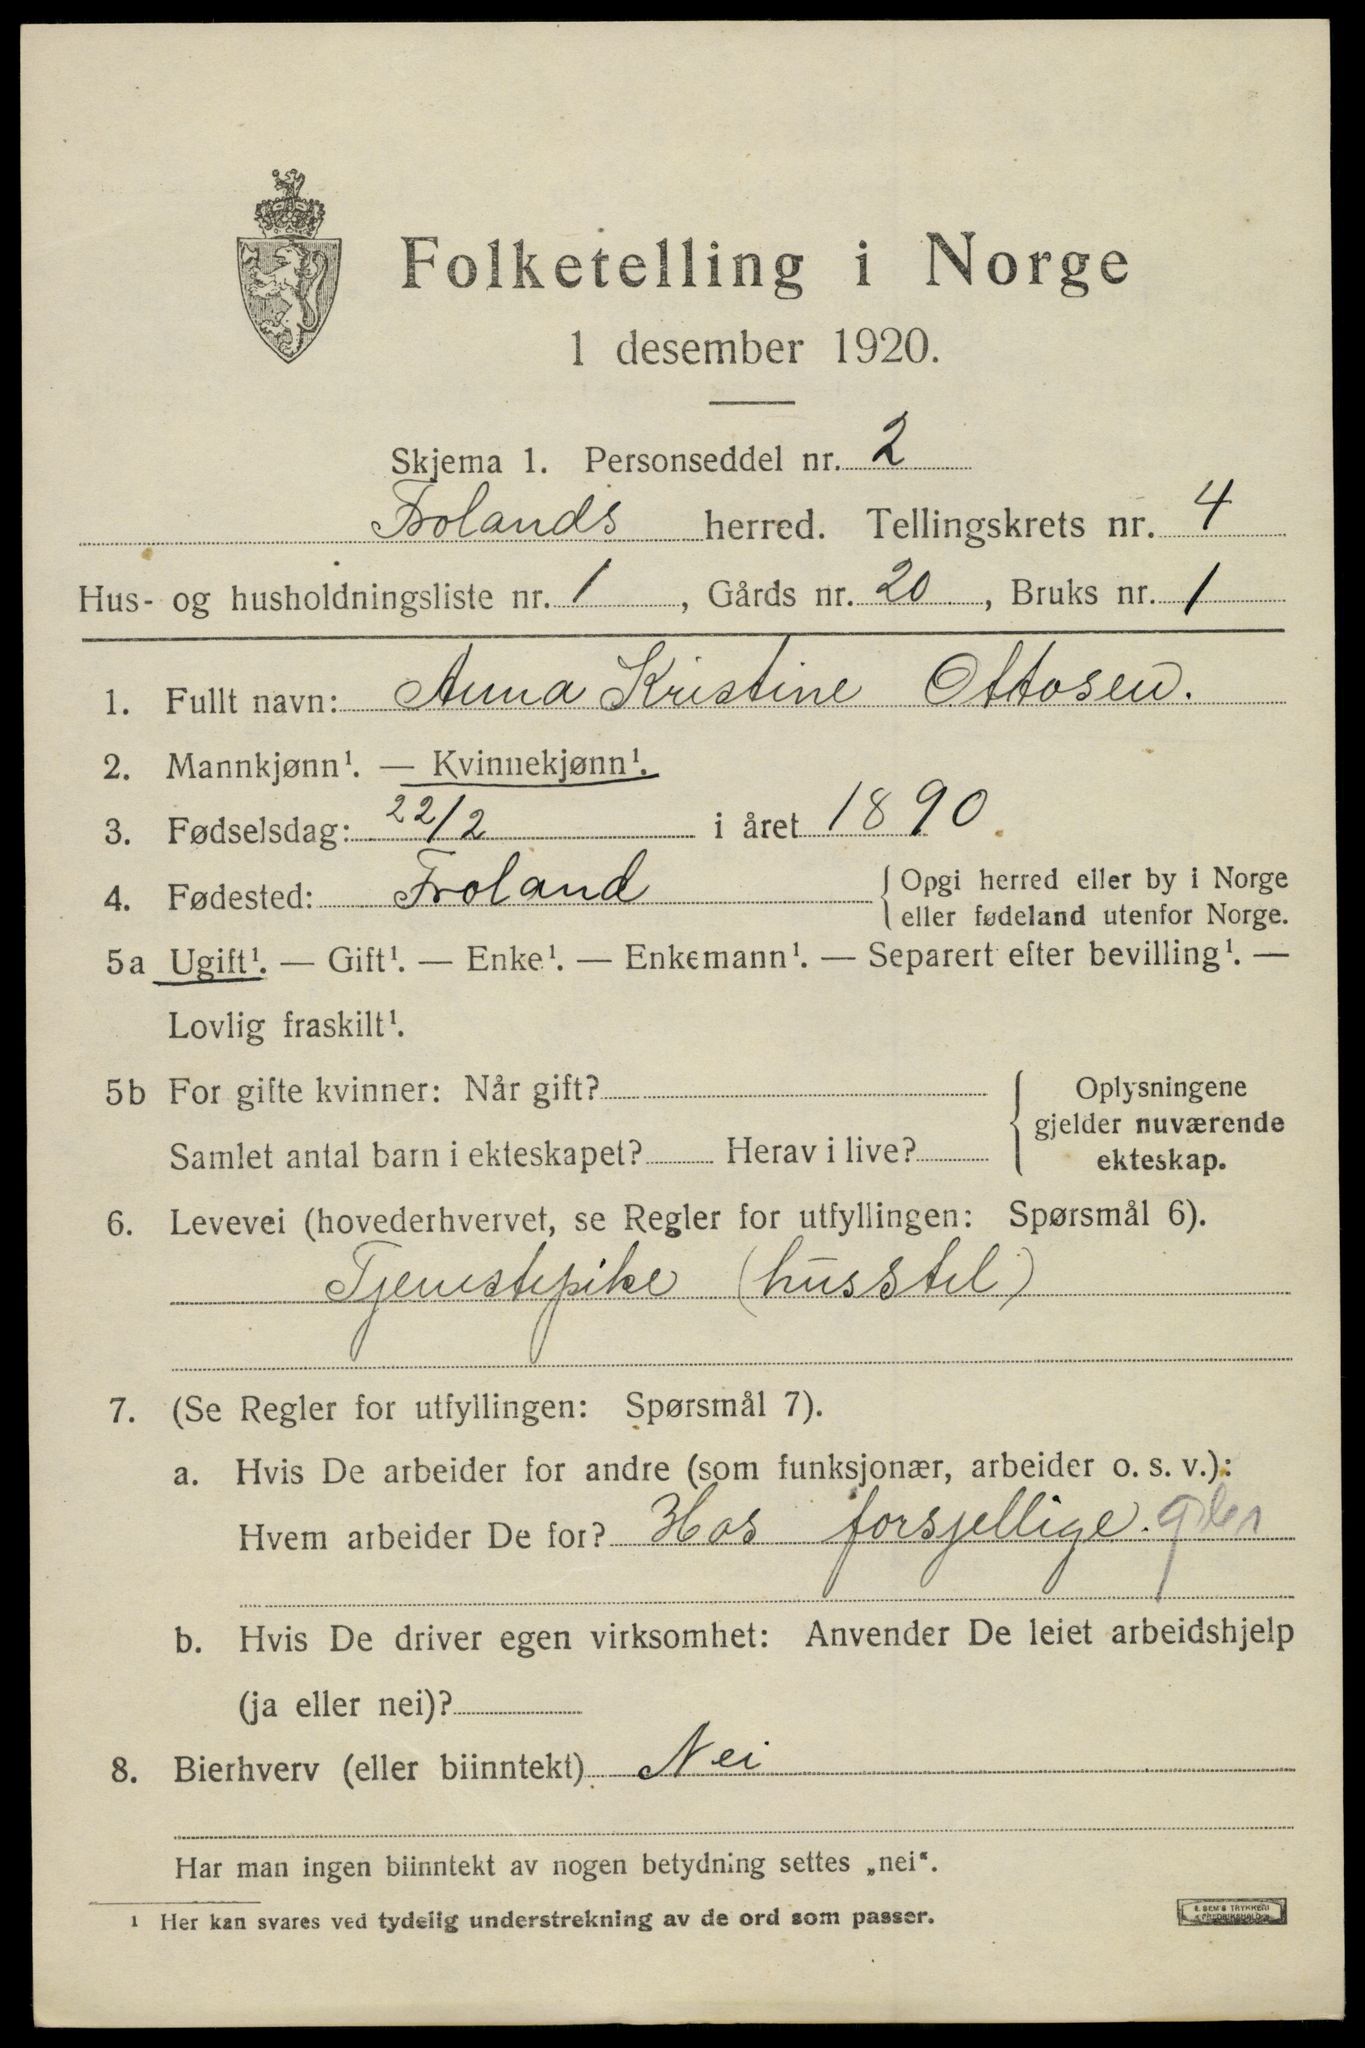 Folketelling i Norge
1 desember 1920.
Skjema 1. Personseddel nr. 2
Frolands herred. Tellingskrets nr. 4
Hus- og husholdningsliste nr. 1, Gårds nr. 20, Bruks nr. 1
1. Fullt navn: Anna Kristine Ottosen.
2. Mannkjønn¹. — Kvinnekjønn¹.
3. Fødselsdag: 22/2 i året 1890
4. Fødested: Froland { Opgi herred eller by i Norge
eller fødeland utenfor Norge.
5a Ugift¹. — Gift¹. — Enke¹. — Enkemann¹. — Separert efter bevilling¹. —
Lovlig fraskilt¹.
5b For gifte kvinner: Når gift?
Samlet antal barn i ekteskapet? Herav i live?
{ Oplysningene
gjelder nuværende
ekteskap.
6. Levevei (hovederhvervet, se Regler for utfyllingen: Spørsmål 6).
Tjenestepike (husstel)
7. (Se Regler for utfyllingen: Spørsmål 7).
a. Hvis De arbeider for andre (som funksjonær, arbeider o. s. v.):
Hvem arbeider De for? Hos forsjellige.
b. Hvis De driver egen virksomhet: Anvender De leiet arbeidshjelp
(ja eller nei)?
8. Bierhverv (eller biinntekt) Nei
Har man ingen biinntekt av nogen betydning settes „nei“.
¹ Her kan svares ved tydelig understrekning av de ord som passer.
E. SEM'S TRYKKERI
FREDRIKSHALD